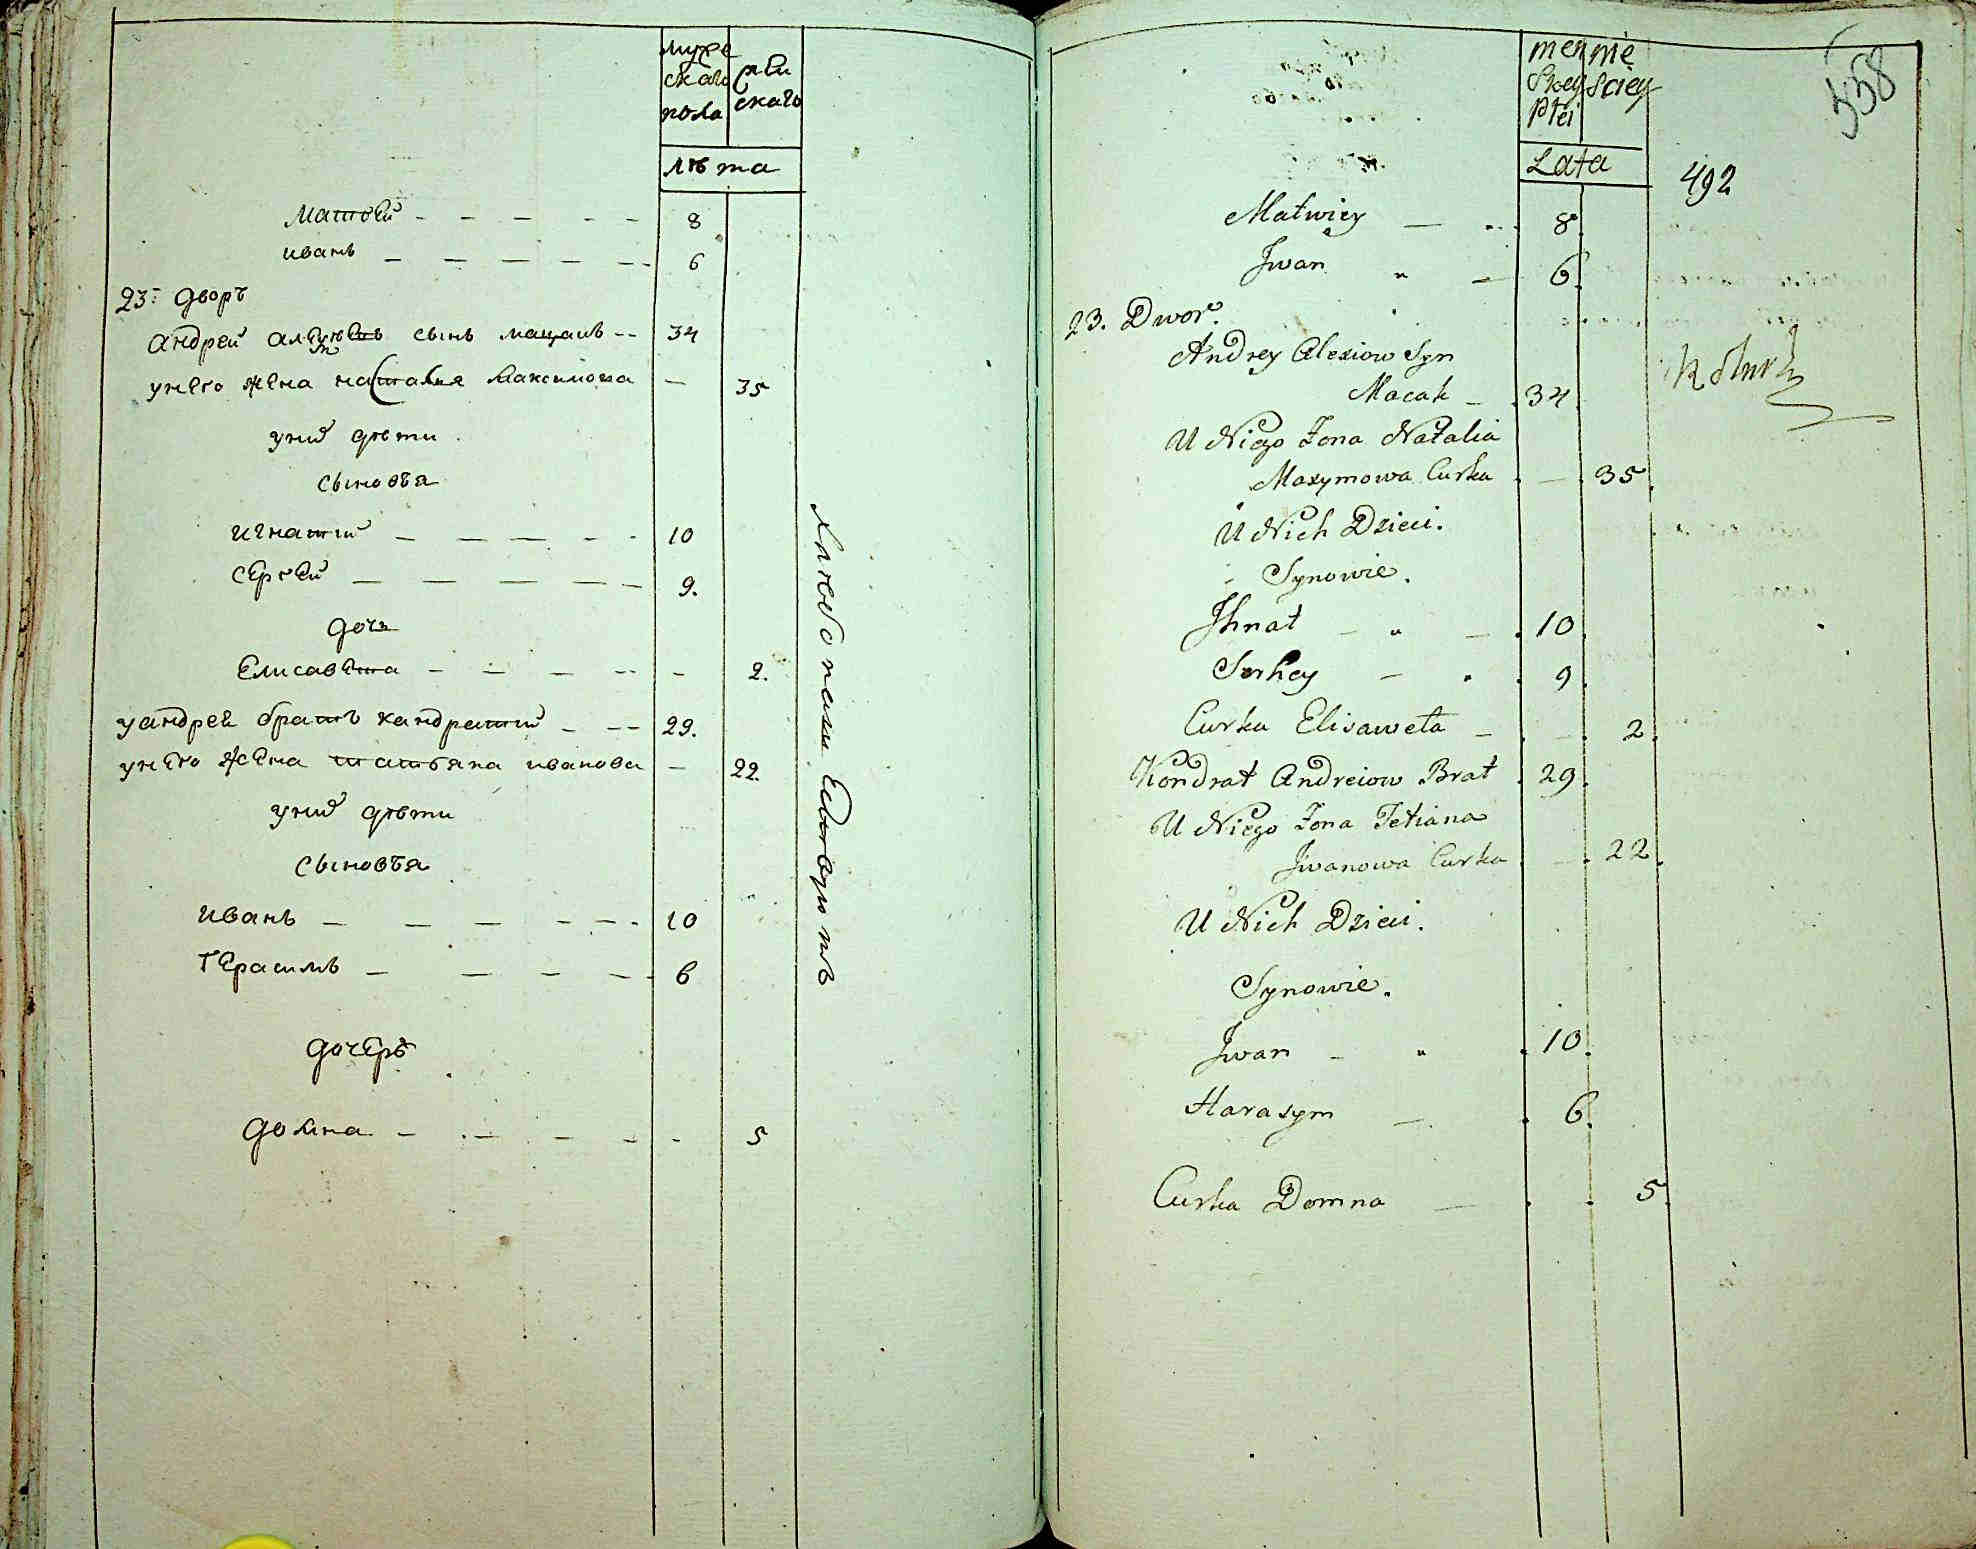 муже
скаго
пола
жен
скаго
лѣта
Матвей 8
иванъ 6
23: дворъ
андрей алексѣевъ сынъ мацакъ 34
унего жена наталья максимова 35
уних дѣти
сыновья
игнатий 10
сергей 9.
дочь
Елисавета 2.
уандрея братъ кандратий 29.
унего жена татьяна иванова 22.
уних дѣти
сыновья
иванъ 10
Герасимъ 6
дочерь
домна 5
хлебопашествуютъ
męz
skey
płci
nie
wsciey
Lata
558
492
Matwiey 8
Jwan 6
23. Dwor.
Andrey Alexiow Syn
Macak 34
U Niego Zona Natalia
Maxymowa Curka 35
U Nich Dzieci.
Synowie.
Jhnat 10
Serhey 9
Curka Elisaweta 2
Kondrat Andreiow Brat 29
U Niego Zona Tetiana
Jwanowa Curka 22
U Nich Dzieci.
Synowie.
Jwan 10
Harasym 6
Curka Domna 5